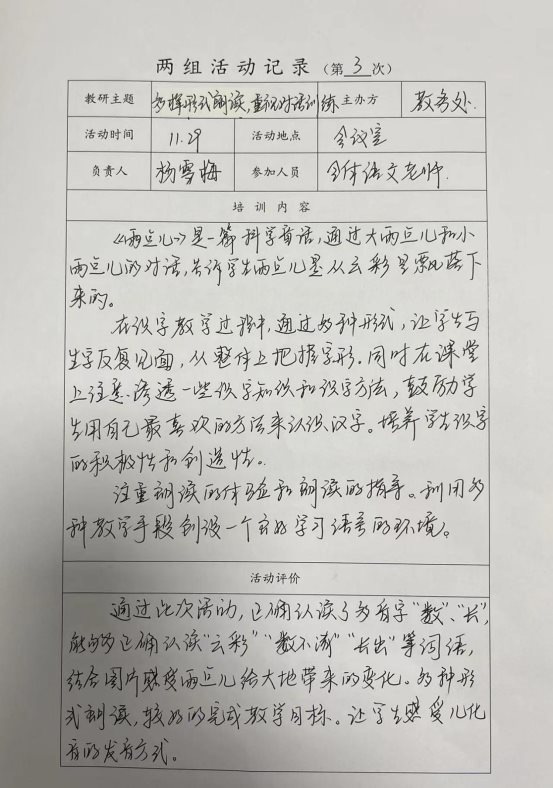 两组活动记录（第3次）
教研主题 多样形式朗读，重视对话训练 主办方 教务处.
活动时间 11.29 活动地点 会议室
负责人 杨雪梅 参加人员 全体语文老师.
培训内容
《雨点儿》是一篇科学童话，通过大雨点儿和小
雨点儿的对话，告诉学生雨点儿是从云彩里飘落下
来的。
在识字教学过程中，通过多种形式，让学生与
生字反复见面，从整体上把握字形。同时在课堂
上注意渗透一些识字知识和识字方法，鼓励学
生用自己最喜欢的方法来认识汉字。培养学生识字
的积极性和创造性。
注重朗读的体验和朗读的指导。利用多
种教学手段创设一个良好学习语言的环境。
活动评价
通过此次活动，正确认读了多音字“数”、“长”，
能够正确认读“云彩”“数不清”“长出”等词语，
结合图片感受雨点儿给大地带来的变化。多种形
式朗读，较好的完成教学目标。让学生感受儿化
音的发音方式。